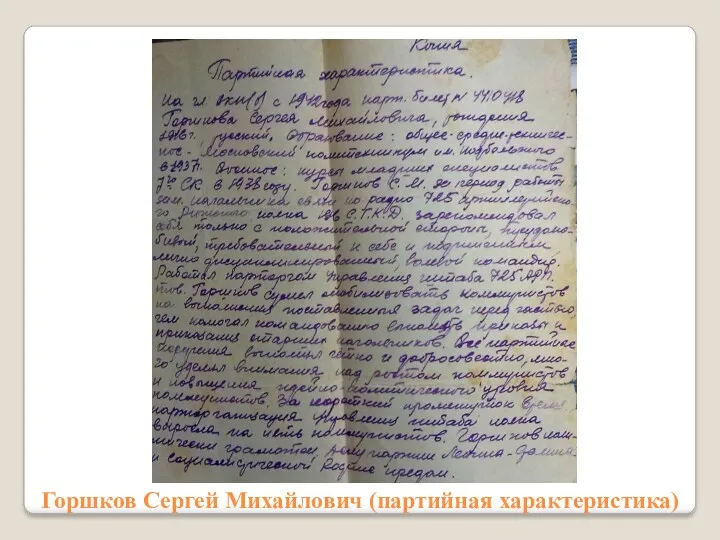 Копия
Партийная характеристика.
На чл. ВКП(б) с 1942 года парт. билет №
Горшкова Сергея Михайловича, рождения
русский, образование: общее-среднее, техничес-
кое - Московский политехникум им.
в 1937г. Военное: курсы младших специалистов
СК в 1938 году. Горшков С.М. за период работы
зам. начальника связи по радио 725 артиллерийско-
го полка С.Т.К.Д. зарекомендовал
себя только с положительной стороны, трудолю-
бивый, требовательный к себе и подчиненным
лично дисциплинированный, волевой командир.
Работая парторгом управления штаба 725
тов. Горшков сумел мобилизовать коммунистов
на выполнение поставленных задач перед частью,
чем помогал командованию выполнять приказы и
приказания старших начальников. Все партийные
поручения выполнял четко и добросовестно, мно-
го уделял внимания над ростом коммунистов
и повышения идейно-политического уровня
коммунистов. За короткий промежуток время
парторганизация управления штаба полка
выросла на пять коммунистов. Горшков
грамотен, делу партии Ленина-
и социалистической Родине предан.
Горшков Сергей Михайлович (партийная характеристика)